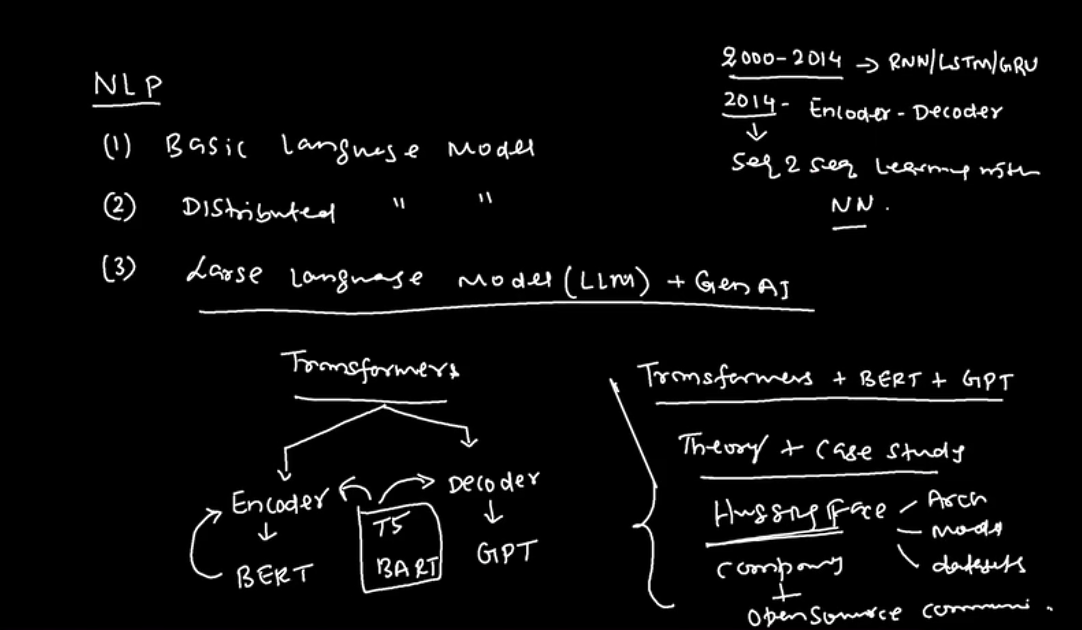 NLP
(1) Basic Language Model
(2) Distributed " "
(3) Large Language Model (LLM) + Gen AI
2000-2014 → RNN/LSTM/GRU
2014 - Encoder - Decoder
Seq 2 Seq Learning with
NN.
Transformers
Encoder
Decoder
T5
BART
BERT
GPT
Transformers + BERT + GPT
Theory + Case study
Hugging Face
Arch
datasets
Company
+
Opensource communi.